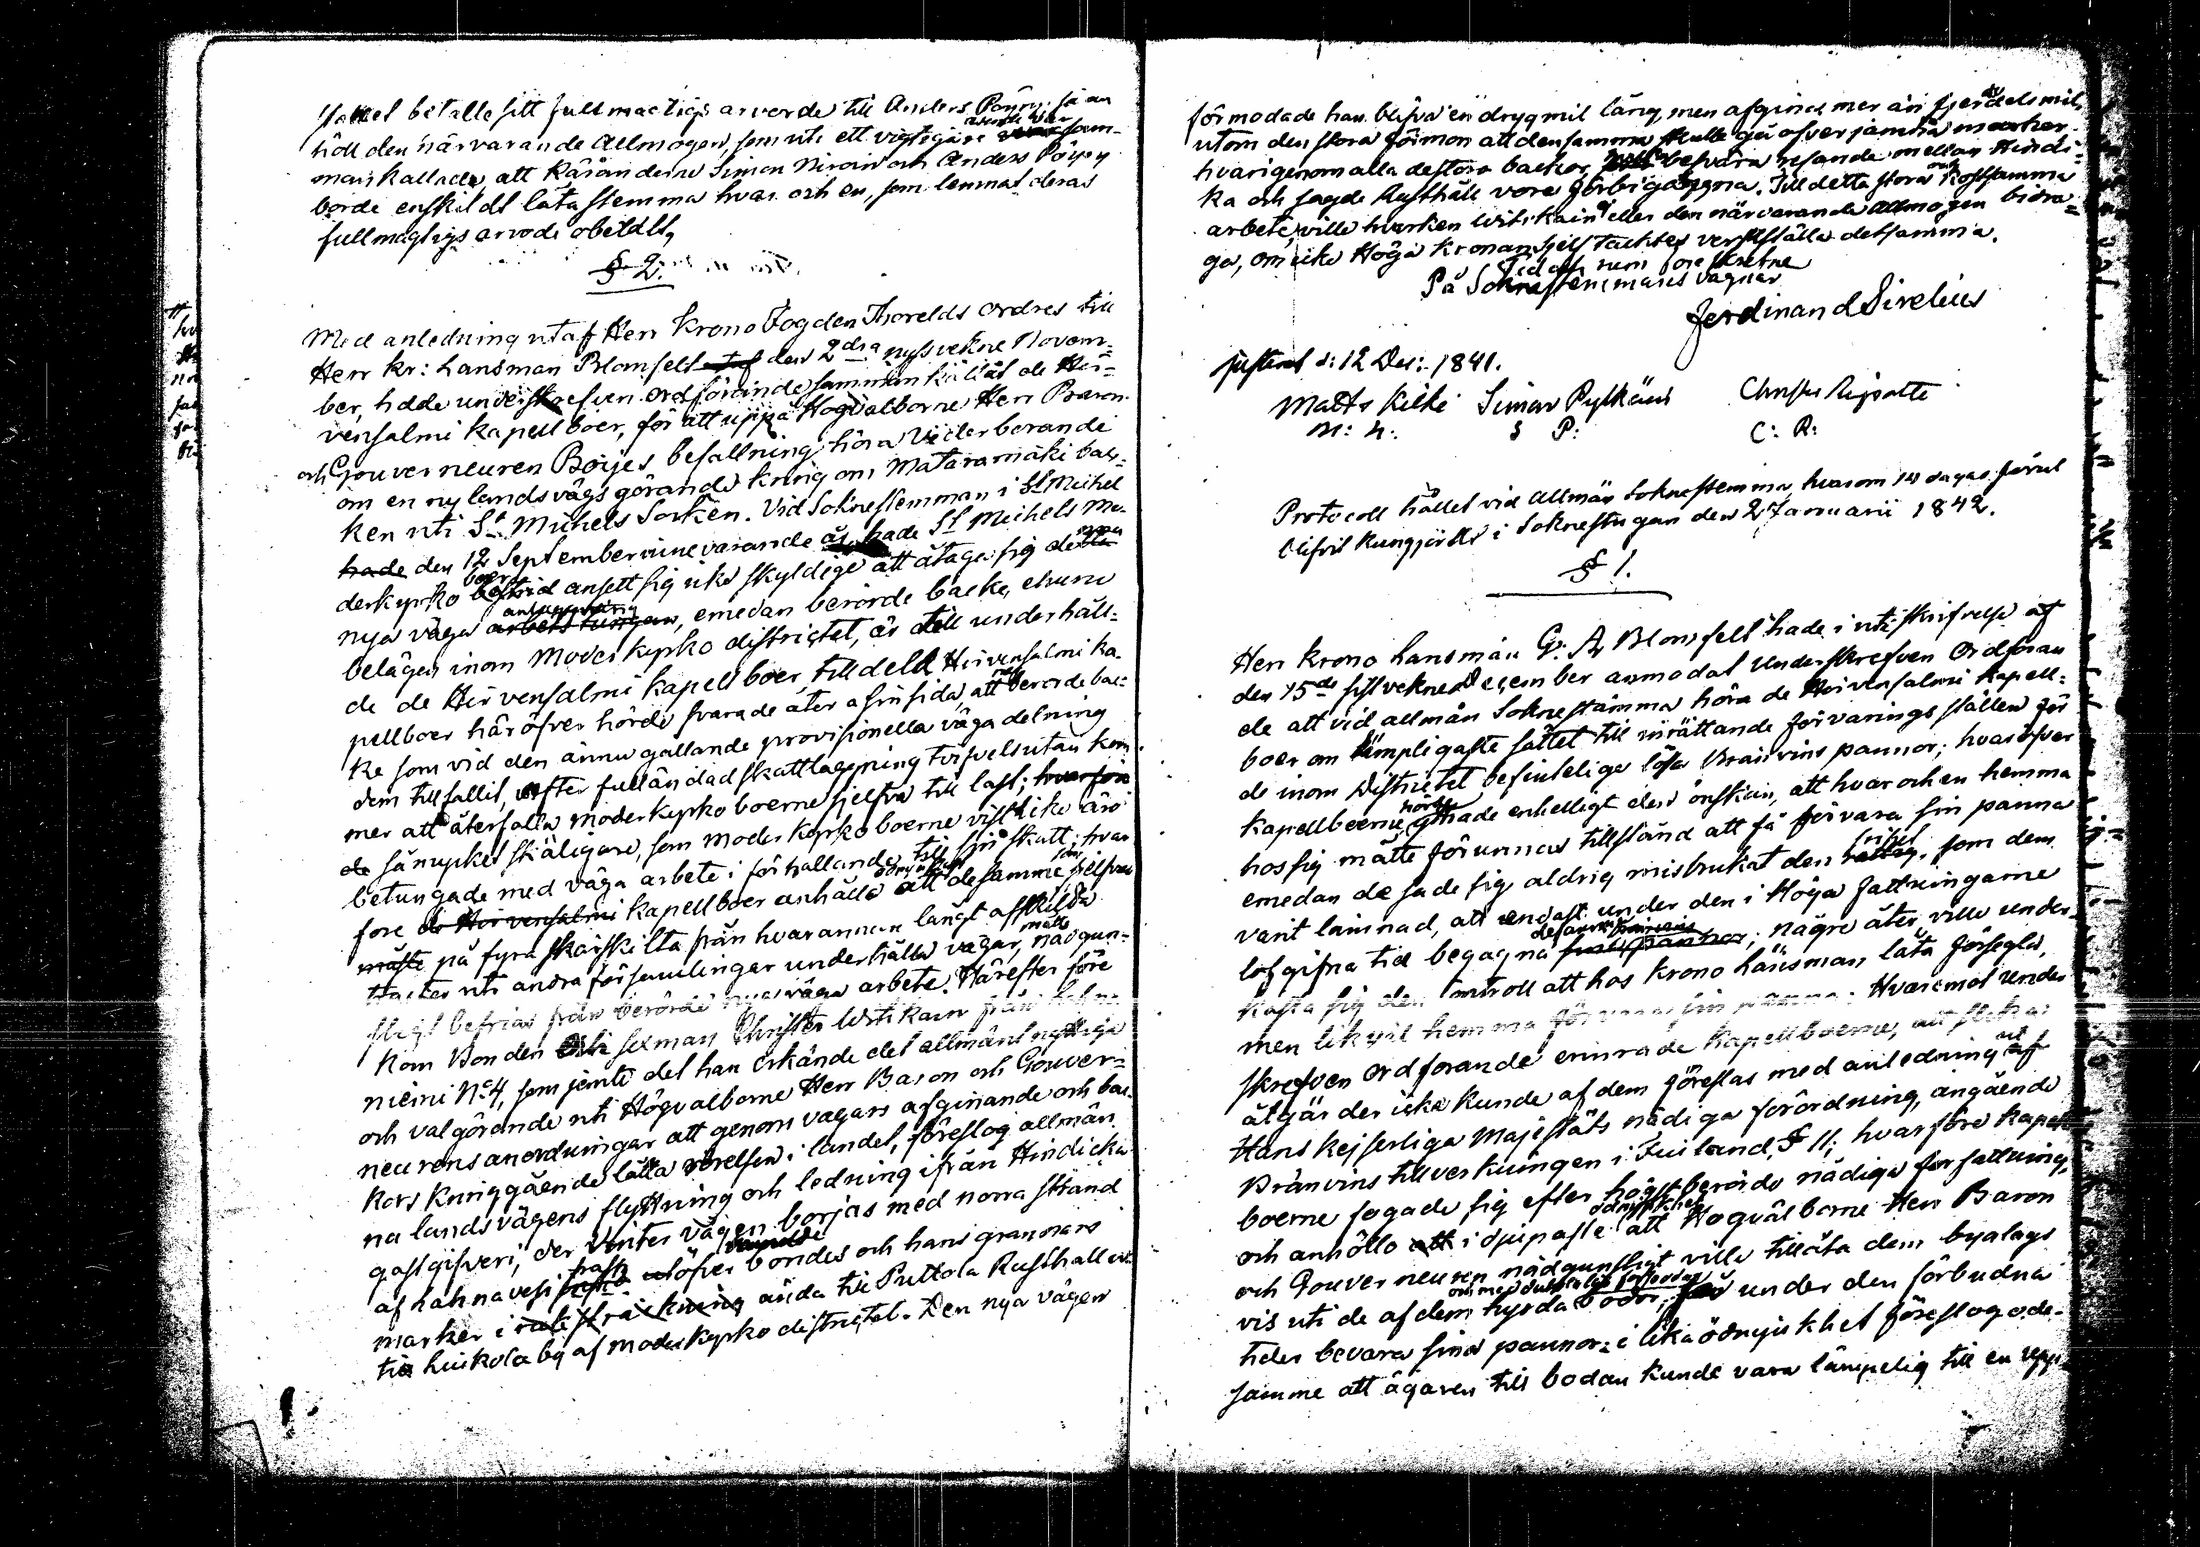 betalle sitt fullmäctigs arvorde till Anders Pöyry; så an
höll den närvarande Allmogen, som uti ett vigtigare sam-
manskallade, att Käranderne Simon Niroin och Anders Pöyry
borde enskildt låta stemma hvar och en, som lemnat deras
fullmägtigs arvode obetaldt,
§ 2.
Med anledning utaf Herr Krono Fogden Thorelds Ordres till
Herr Kr: Lansman Blomfelt den 2dra nyss vekne Novem-
ber, hade underskrefven Ordförande sammankallat de Hir-
vensalmi Kapellboer, för att uppå Högvälborne Herr Baron
och Gouverneuren Böijes befallning höra Vederbörande
om en ny landsvägs görande kring om Mataramäki bac-
ken uti St Michels Socken. Vid Soknestemman i St Michel
hade den 12 September innevarande år hade St Michels Mo-
derkyrko boer ansett sig icke skyldige att åtaga sig denna
nya väga anläggning arbets tungan, emedan berörde backe, ehuru
belägen inom Moderkyrko districtet, är till underhåll-
de de Hirvensalmi Kapellboer tilldeld. Hirvensalmi Ka-
pellboer häröfver hörde svarade åter å sin sida, att berörde bac-
ke som vid den ännu gällande provisionella väga delning
dem tillfallit, efter fulländad skattläggning tvifvelsutan kom-
mer att återfalla moderkyrko boerne sjelfva till last; hvarföre
de så mycket skäligare, som moderkyrko boerne visst icke äro
betungade med väga arbete i förhållande till sin skatt; hvar
före de Hirvensalmi Kapellboer anhålla ödmjukast att de samme, som sjelfva
måste på fyra särskilta från hvarannan långt afskilda
trakter uti andra församlingar underhålla vägar, måtte nådgun-
stligt befrias från berörde nya väga arbete. Härefter före
kom Bonden sexman Christer Witikain från
niemi No 4, som jemte det han erkände det allmänt nyttiga
och välgörande uti Högvälborne Herr Baron och Gouver-
neurens anordningar att genom vägars afginande och bac-
kars kringgående lätta rörelsen i landet, föreslog allmän
na landsvägens flyttning och ledning ifrån Hindicka
gästgifveri, der vinter vägen börjas med norra strand
af Lahnavesi öfver bondes och hans grannars
marker i rät sträckning ända till Puttola Rusthall in
till Luikola by af moderkyrko districtet. Den nya vägen
förmodade han blifva en dryg mil lång, men afgina mer än fjerdedels mil,
utom den stora förmon att densamma skulle gå öfver jämna marker.
hvarigenom alla de stora backor, besvära resande mellan Hindi-
ka och sagde Rusthåll vore förbigångna. Till detta stora och kostsamma
arbete, ville hvarken Witikain eller den närvarande allmogen bidra-
ga, om icke Höga Kronan sjelf täcktes verkställa detsamma.
Tid och rum föreskrefne
På Soknestemmans vägnar
Ferdinand Sirelius
justeradt d: 12 Dec: 1841.
Matts Kilki Simon Pylkäin Christer Ripatti
M: K: S P: C: R:
Protocoll hållet vid Allmän Soknestemma, hvarom 14 dagar förut
blifvit kungjordt i Soknestugan den 2 Januarii 1842.
§ 1.
Herr Krono Lansman G. A. Blomfelt hade i skrifvelse af
den 15de sistvekne December anmodat Underskrefven Ordföran
de att vid allmän Soknestämma höra de Hirvensalmi Kapell-
boer om lämpligaste sättet till inrättande förvarings ställen för
de inom Districtet befintelige lösa Bränvins pannor; hvaröfver
Kapellboerne hörde yttrade enhelligt den önskan, att hvar och en hemma
hos sig måtte förunnas tillstånd att få förvara sin panna
emedan de sade sig aldrig misbrukat den frihet, som dem
varit lämnad, att endast under den i Höga Fattningarne
lofgifna tid begagna pannor; någre åter ville under-
kasta sig den controll att hos Krono Länsman låta försegla,
men likväl hemma förvara sin panna: Hvaremot Under
skrefven Ordförande erinrade Kapellboerne, att slika
åtgärder icke kunde af dem föreslås med anledning af
Hans Kejserliga Majestäts nådiga förordning, angående
Bränvins tillverkningen i Finland, § 11; hvarföre Kapell
boerne fogade sig efter högstberörde nådiga författning,
och anhöllo i djupaste ödmjukhet att Högvälborne Herr Baron
och Gouverneuren nådgunstligt ville tillåta dem byalags
vis uti de af dem hyrda bodar, under den förbudna
tiden bevara sina pannor; i lika ödmjukhet föreslog de-
samme att ägaren till bodan kunde vara lämpelig till en upp-